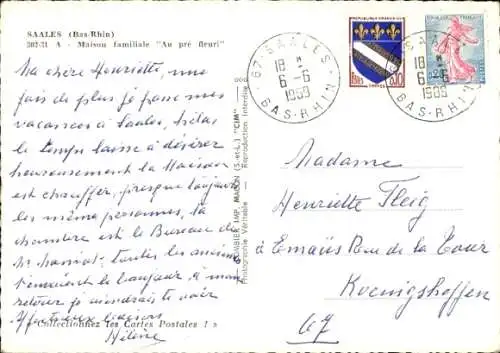 SAALES (Bas-Rhin)
302-31 A - Maison familiale "Au pré fleuri"
Ma chère Henriette, une
fois de plus je passe mes
vacances à Saales, hélas
le temps laisse à désirer
heureusement la Maison
est chauffée, presque toujours
les même personnes, la
chambre est le Bureau de
toutes les
le bonjour à mon
retour je aimerais te voir
Affectueux baisers
Hélène
« Collectionnez les Cartes Postales ! »
COMBIER IMP. MACON (S.-et-L.) "CIM"
Photographie Véritable - Reproduction Interdite
67 · SAALES
18 H
6 - 6
BAS-RHIN
REPUBLIQUE FRANÇAISE
0,10
67 · SAALES
18 H
6 - 6
BAS-RHIN
Madame
Henriette Fleig
à Emaüs Rue de la Tour
Koenigshoffen
67